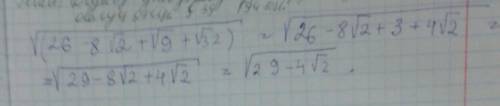 √(26 - 8√2 + √9 + √32) = √26 - 8√2 + 3 + 4√2 =
= √29 - 8√2 + 4√2 = √29 - 4√2 .